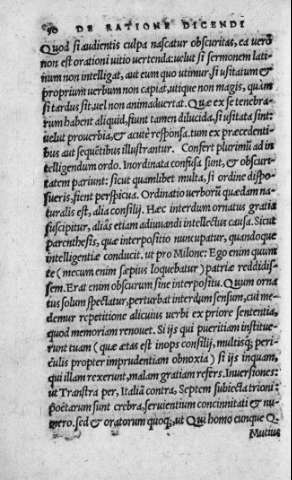 90 DE RATIONE DICENDI
Quod si audientis culpa nascatur obscuritas, ea verò
non est orationi uitio vertenda: uelut si sermonem lati
num non intelligat, aut eum quo utimur, si usitatum &
proprium verbum non capiat, utique non magis, quàm
si tardus sit, uel non animaduertat. Quæ ex se tenebra-
rum habent aliquid, fiunt tamen dilucida, si usitata sint:
uelut prouerbia, & acutè responsa. tum ex præcedenti-
bus aut sequẽtibus illustrantur. Confert plurimũ ad in
telligendum ordo. Inordinata confusa sint, & obscuri-
tatem pariunt: sicut quamlibet multa, si ordine dispo-
sueris, fient perspicua. Ordinatio verborũ quædam na-
turalis est, alia consilij. Hæc interdum ornatus gratia
suscipitur, aliàs etiam adiuuandi intellectus causa. Sicut
parenthesis, quæ interpositio nuncupatur, quandoque
intelligentiæ conducit. ut pro Milone: Ego enim quum
te (mecum enim sæpius loquebatur) patriæ reddidis-
sem. Erat enim obscurum sine interpositu. Quum orna
tus solum spectatur, perturbat interdum sensum, cui me-
demur repetitione alicuius verbi ex priore sententia,
quod memoriam renouet. Si ijs qui pueritiam instituE-
runt tuam (quæ ætas est inops consilij, multisq; peri-
culis propter imprudentiam obnoxia) si ijs inquam,
qui illam rexerunt, malam gratiam refers. Inuersiones:
ut Transtra per, Italiã contra, Septem subiecta trioni:
poëtarum sunt crebra, seruientium concinnitati & nu-
mero. sed & oratorum quoq;, ut Qui homo cunque Q.
Mutius